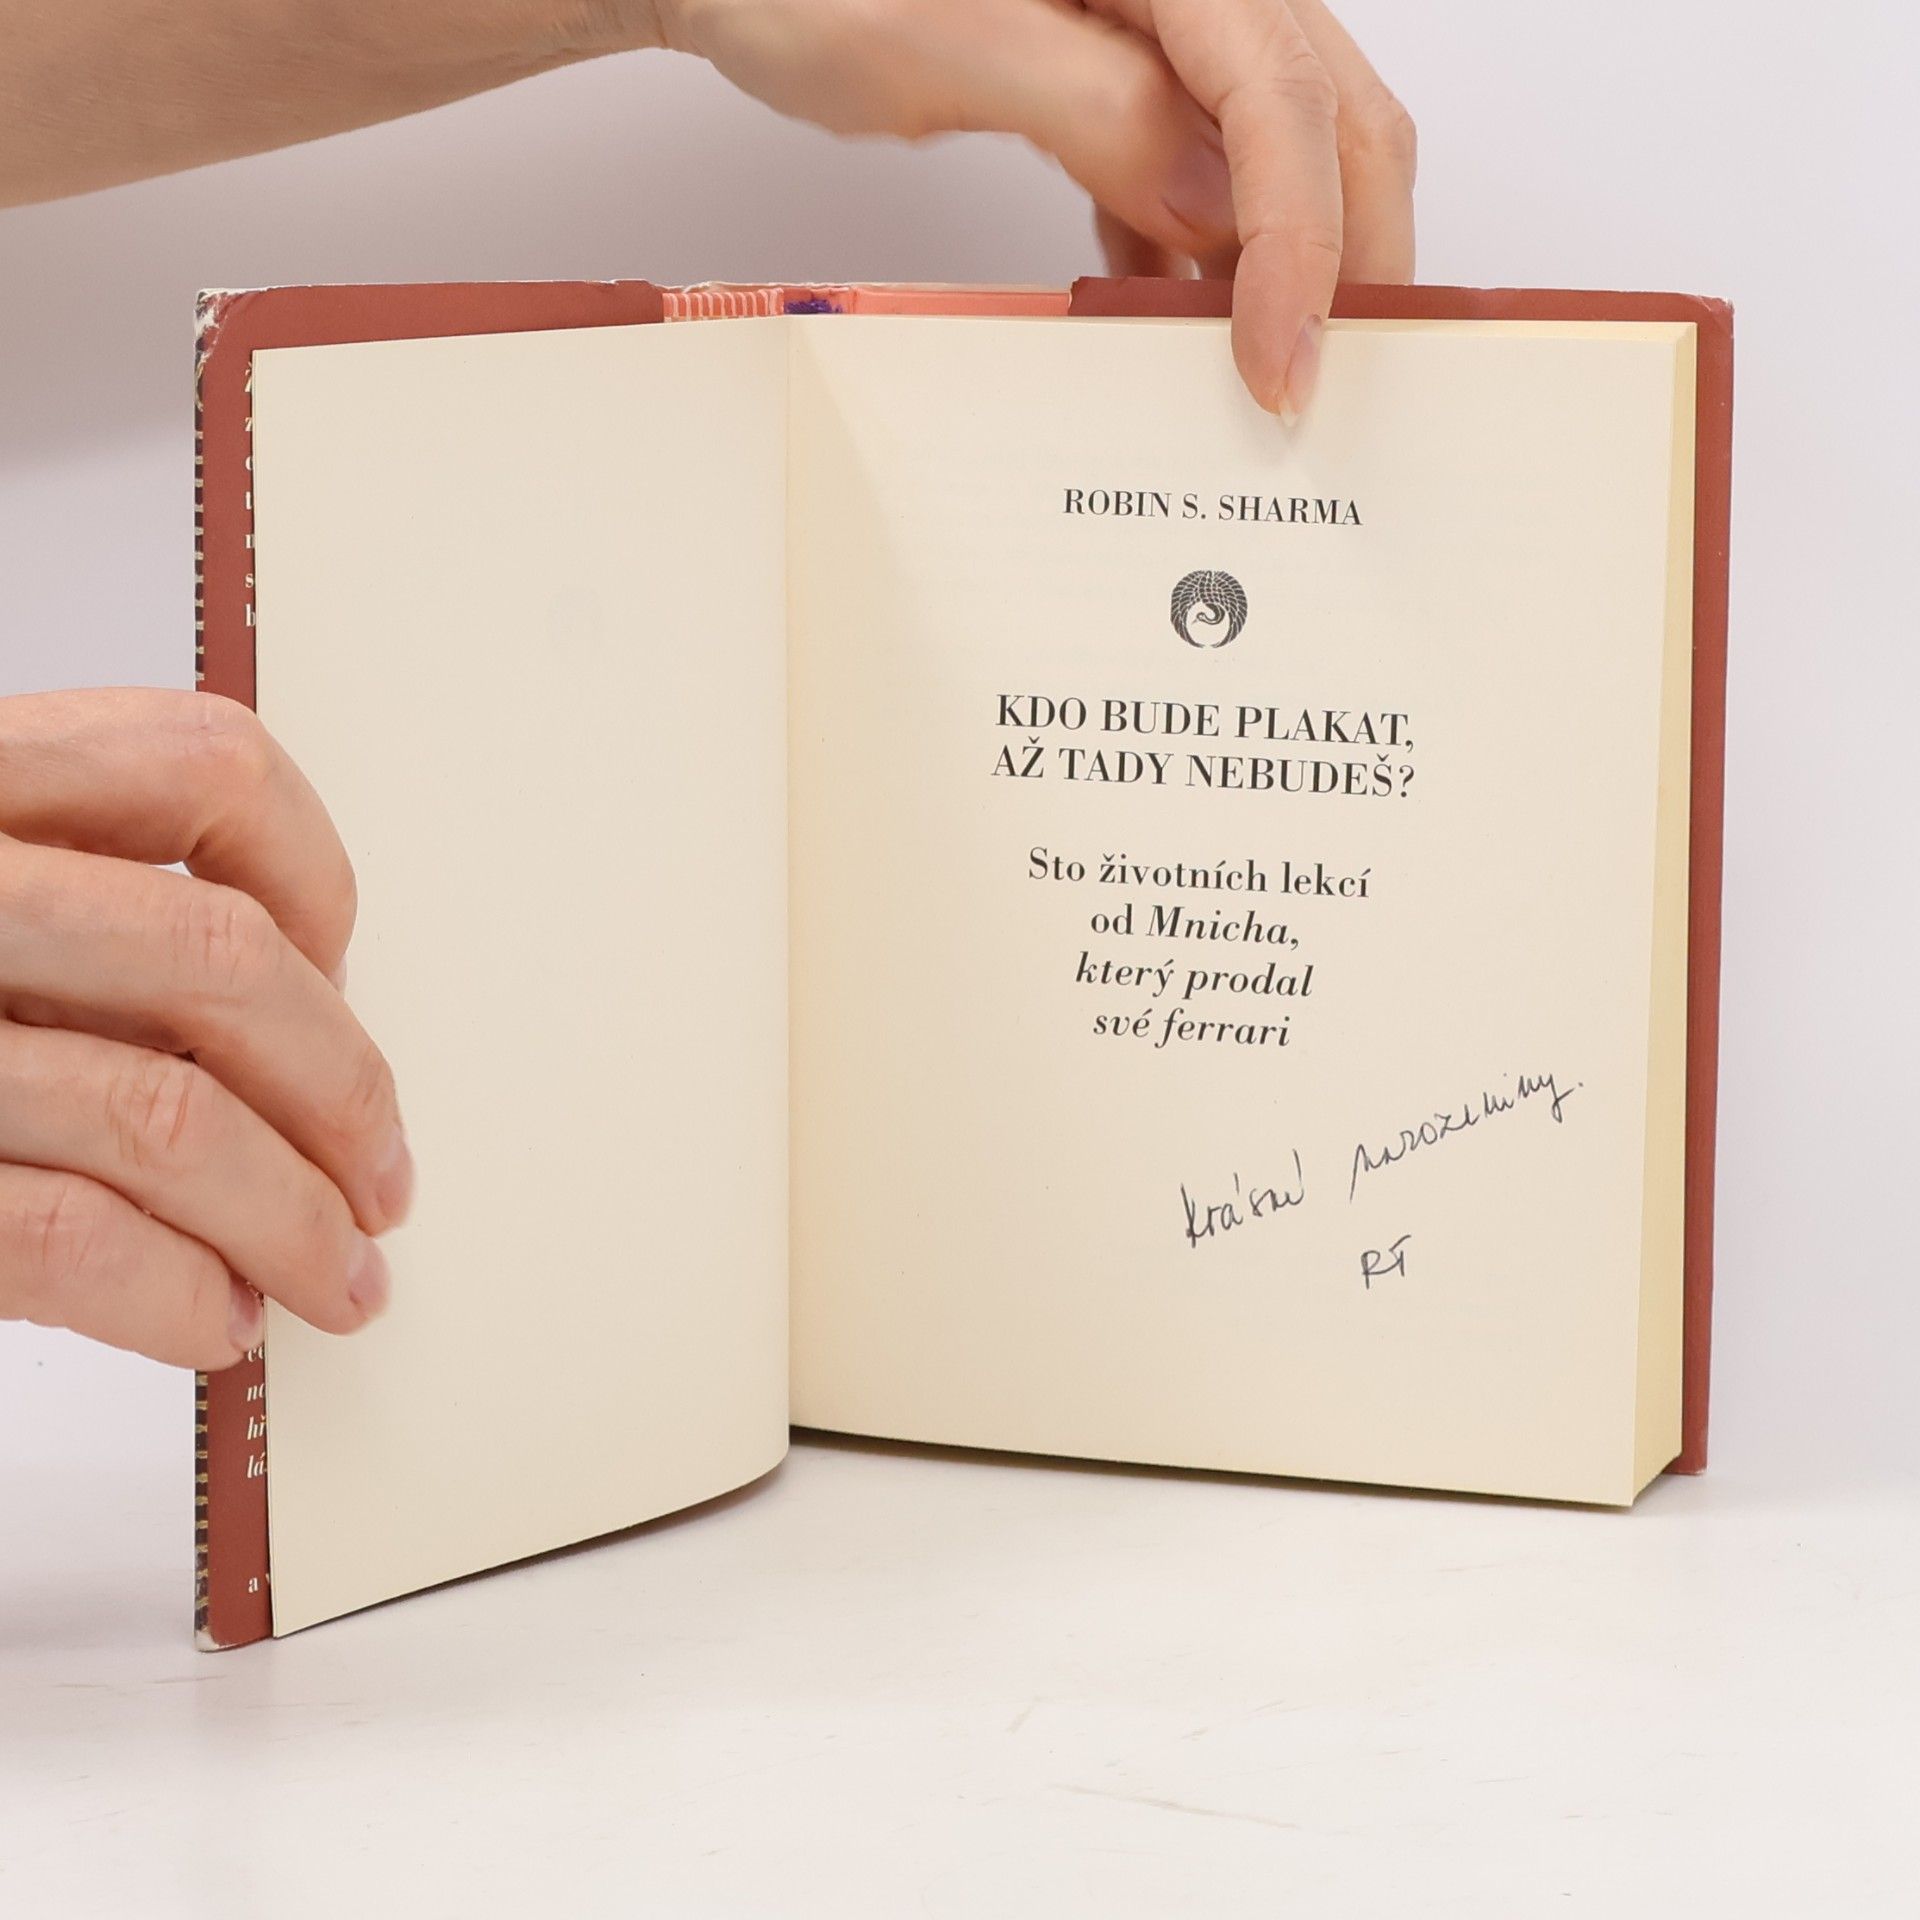 ROBIN S. SHARMA
KDO BUDE PLAKAT,
AŽ TADY NEBUDEŠ?
Sto životních lekcí
od Mnicha,
který prodal
své ferrari
Krásné narozeniny.
RT